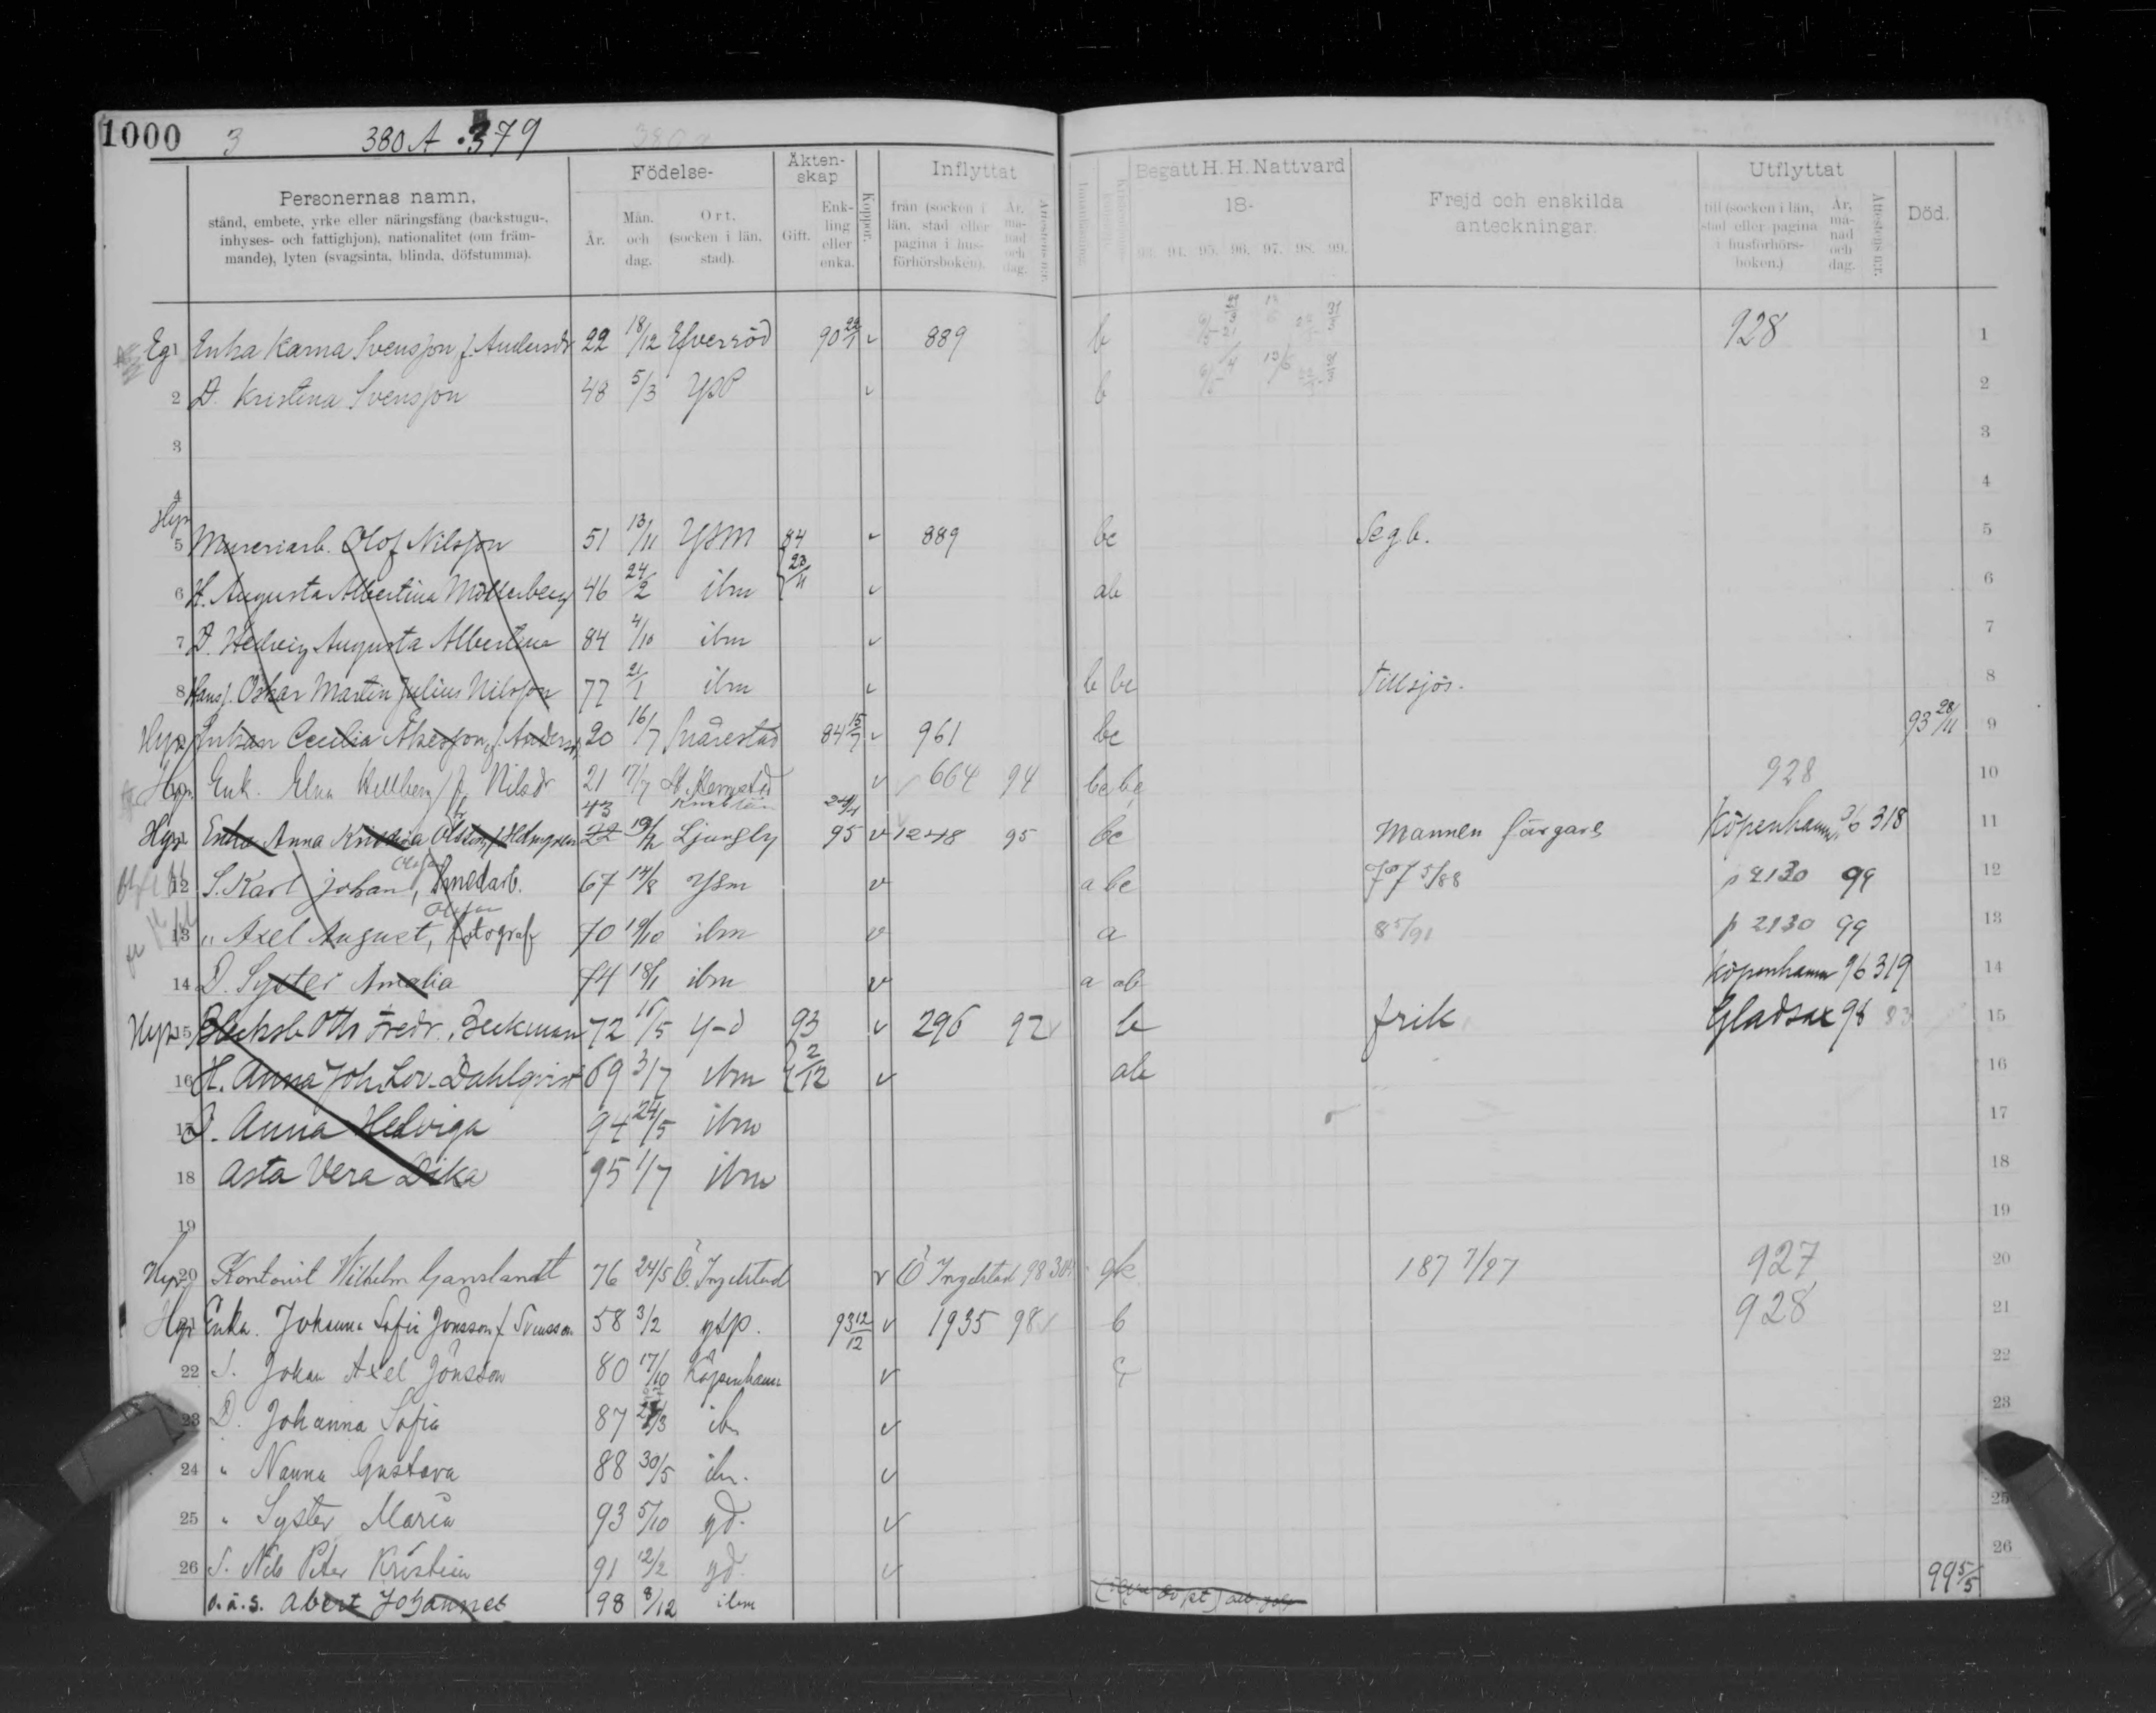 1000 3 380 A 379
Personernas namn,
stånd, embete, yrke eller näringsfång (backstugu-,
inhyses- och fattighjon), nationalitet (om främ-
mande), lyten (svagsinta, blinda, döfstumma).
Födelse-
År. Mån. och dag. Ort. (socken i län, stad).
Äkten-skap
Gift. Enk-ling eller enka.
Koppor.
Inflyttat
från (socken i län, stad eller pagina i hus-förhörsboken). År, må-nad och dag. Attestens n:r.
Begått H. H. Nattvard
18-
93. 94. 95. 96. 97. 98. 99.
Frejd och enskilda anteckningar.
Utflyttat
till (socken i län, stad eller pagina i husförhörs-boken.) År, må-nad och dag. Attestens n:r.
Död.
Eg 1 Enka Karna Svensson f. Andersdr 22 18/12 Efveröd 90 22/1 v 889 b 928 1
2 D. Kristina Svensson 48 5/3 YSP v b 2
3 3
4 4
Hyr 5 Mureriarb. Olof Nilsson 51 13/11 YSM 84 v 889 bc Segb. 5
6 H. Augusta Albertina Möllerberg 46 24/2 ibm 23/11 v ab 6
7 D. Hedvig Augusta Albertina 84 4/10 ibm v 7
8 Hans s. Oskar Martin Julius Nilsson 77 21/1 ibm v b bc Tillsjös. 8
Hyr Enkan Cecilia Åkesson, f. Anders 20 16/7 Snårestad 84 15/7 v 961 bc 93 28/11 9
Hyr. Enk. Elna Hellberg f. Nilsdr 21 17/7 St. Herrestad v 664 94 bc bc 928 10
Hyr Enka Anna Kristina Olsson, f. Holmgren 22 43 19/2 Ljungby 24/4 95 v 1248 95 bc Mannen färgare Köpenhamn 96 318 11
12 S. Karl Johan, Olsson Smedarb. 67 14/8 YSM v a bc 707 5/88 p 2130 99 12
13 " Axel August, Olsson fotograf 70 19/10 ibm v a 8 5/91 p 2130 99 13
14 D. Syster Amalia 74 18/1 ibm v a ab Köpenhamn 96 319 14
Hyr 15 Blecksl. Otto Fredr. Beckman 72 16/5 Y-d 93 v 296 92 b frik Gladsax 96 83 15
16 H. Anna Joh. Lov. Dahlqvist 69 3/7 ibm 2/12 v ab 16
17 D. Anna Hedviga 94 24/5 ibm 17
18 Asta Vera Dika 95 1/7 ibm 18
19 19
Hyr 20 Kontorist Wilhelm Ganslandt 76 24/5 Ö. Ingelstad v Ö Ingelstad 98 304 gk 187 7/97 927 20
Hyr 21 Enka. Johanna Sofia Jönsson f. Svensson 58 3/2 ysp. 93 12/12 v 1935 98 b 928 21
22 S. Johan Axel Jönsson 80 17/10 Köpenhamn v 22
23 D. Johanna Sofia 87 ibm v 23
24 " Nanna Gustava 88 30/5 ibm. v
25 " Syster Maria 93 5/10 yd. v 25
26 S. Nils Peter Kristian 91 12/2 yd. v 26
o.ä.s. Abert Johannes 98 8/12 ibm 99 5/5